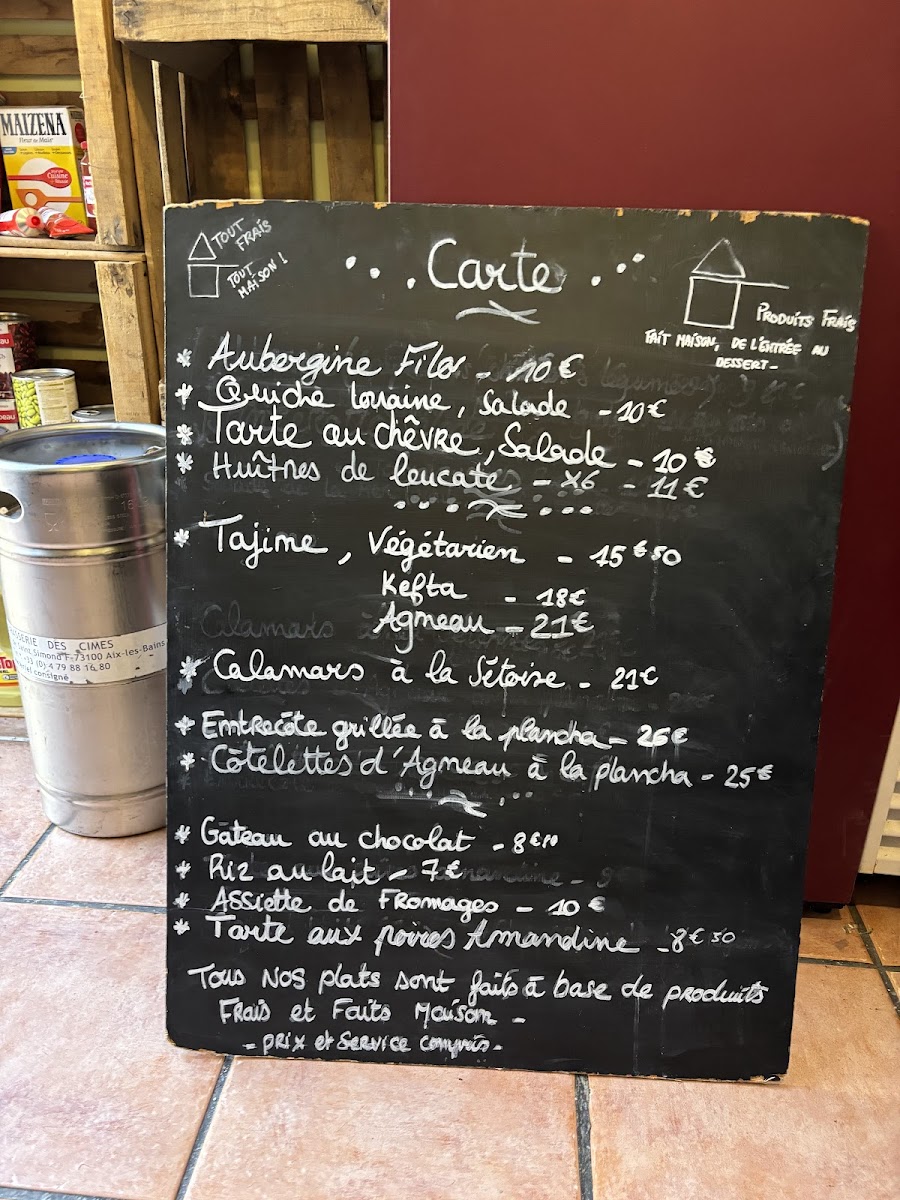 MAIZENA
Fleur de Maïs
TOUT
FRAIS
TOUT
MAISON !
Carte
PRODUITS FRAIS
FAIT MAISON, DE L'ENTRÉE AU
DESSERT-
* Aubergine Filo - 10 €
* Quiche lorraine, Salade - 10€
* Tarte au chêvre, Salade - 10 €
* Huîtres de leucate - x6 - 11 €
* Tajine, Végétarien - 15€50
Kefta - 18€
Agneau - 21€
* Calamars à la Sétoise - 21€
* Entrecôte grillée à la plancha - 26€
* Côtelettes d'Agneau à la plancha - 25€
* Gâteau au chocolat - 8€
* Riz au lait - 7€
* Assiette de Fromages - 10 €
* Tarte aux poires Amandine - 8€50
Tous Nos plats sont faits à base de produits
Frais et Faits Maison -
- prix et Service compris -
SSERIE DES CIMES
Simond F-73100 Aix-les-Bains
(0) 4 79 88 16 80
consigné